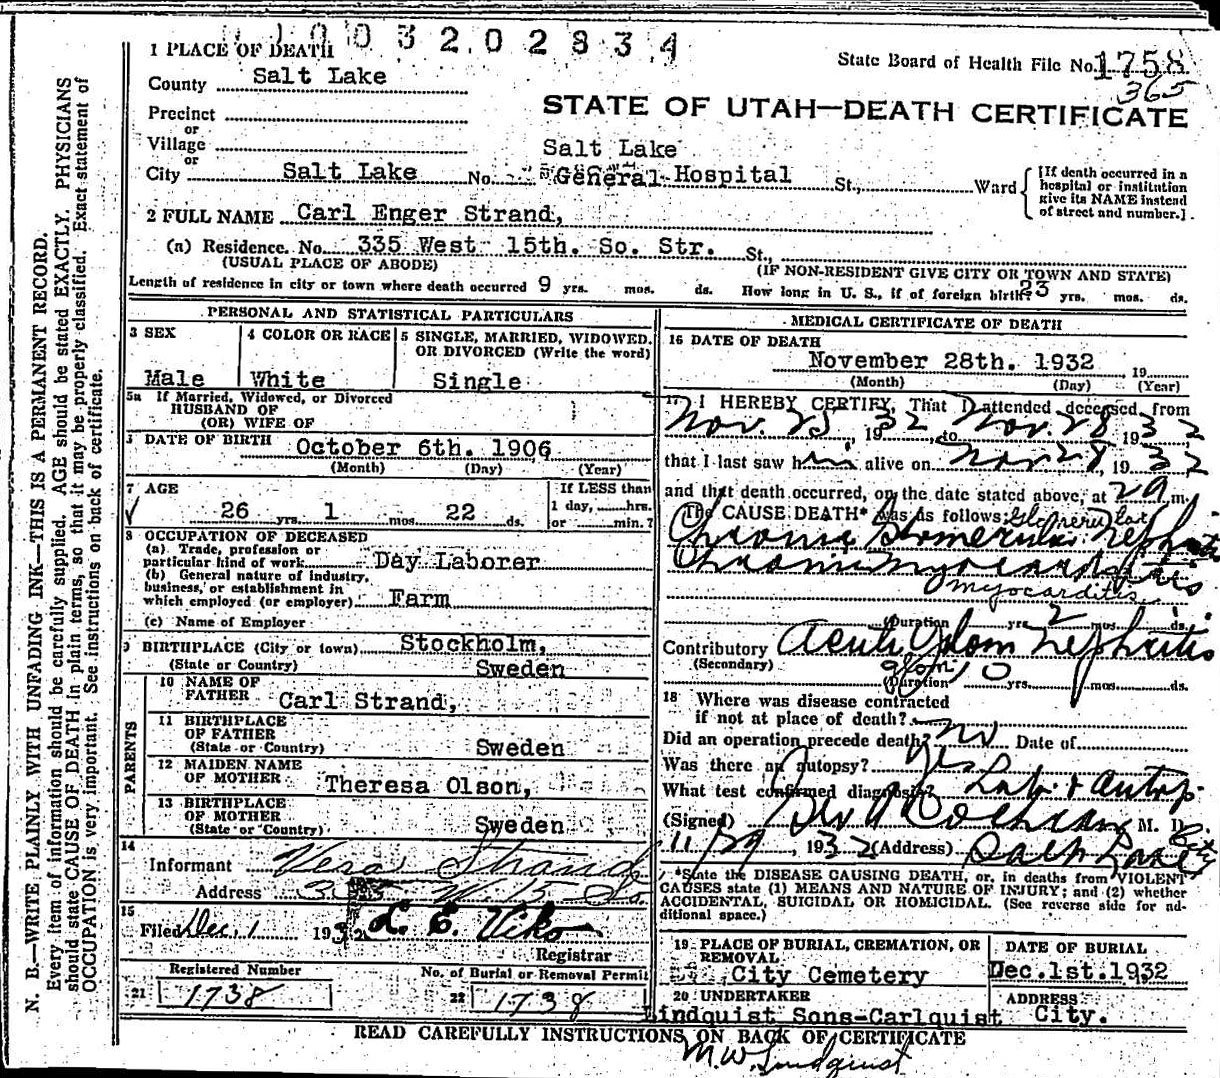 1003202834
1 PLACE OF DEATH
State Board of Health File No. 1758
365
County Salt Lake
STATE OF UTAH—DEATH CERTIFICATE
Precinct
or
Village
or
Salt Lake
City Salt Lake No. General Hospital St., Ward
[If death occurred in a
hospital or institution
give its NAME instead
of street and number.]
2 FULL NAME Carl Enger Strand,
(a) Residence. No. 335 West 15th. So. Str. St.,
(USUAL PLACE OF ABODE) (IF NON-RESIDENT GIVE CITY OR TOWN AND STATE)
Length of residence in city or town where death occurred 9 yrs. mos. ds. How long in U. S., if of foreign birth? 23 yrs. mos. ds.
PERSONAL AND STATISTICAL PARTICULARS
3 SEX
Male
4 COLOR OR RACE
White
5 SINGLE, MARRIED, WIDOWED,
OR DIVORCED (Write the word)
Single
5a If Married, Widowed, or Divorced
HUSBAND OF
(OR) WIFE OF
DATE OF BIRTH
October 6th. 1906
(Month) (Day) (Year)
7 AGE
26 yrs. 1 mos. 22 ds.
If LESS than
1 day, hrs.
or min.?
8 OCCUPATION OF DECEASED
(a) Trade, profession or
particular kind of work Day Laborer
(b) General nature of industry,
business, or establishment in
which employed (or employer) Farm
(c) Name of Employer
9 BIRTHPLACE (City or town) Stockholm,
(State or Country) Sweden
PARENTS
10 NAME OF
FATHER Carl Strand,
11 BIRTHPLACE
OF FATHER
(State or Country) Sweden
12 MAIDEN NAME
OF MOTHER Theresa Olson,
13 BIRTHPLACE
OF MOTHER
(State or Country) Sweden
14
Informant Vera Strand
Address 335 W. 15 So
15
Filed Dec. 1 1932 L. E. Viko
Registrar
Registered Number
21 1738
No. of Burial or Removal Permit
22 1738
MEDICAL CERTIFICATE OF DEATH
16 DATE OF DEATH
November 28th. 1932, 19
(Month) (Day) (Year)
17 I HEREBY CERTIFY, That I attended deceased from
Nov. 25, 1932, to Nov. 28 1932
that I last saw him alive on Nov 28, 1932
and that death occurred, on the date stated above, at m.
The CAUSE DEATH* was as follows: Glomerular
Chronic Glomerular Nephritis
Chronic Myocarditis
myocarditis
(Duration yrs. 2 mos. ds.
Contributory Acute Glom Nephritis
(Secondary) glom
(Duration) 10 yrs. mos. ds.
18 Where was disease contracted
if not at place of death?
Did an operation precede death? no Date of
Was there an autopsy? Yes
What test confirmed diagnosis? Lab. & autop.
(Signed) Cochran M. D.
11/29, 1932 (Address) Salt Lake City
*State the DISEASE CAUSING DEATH, or, in deaths from VIOLENT
CAUSES state (1) MEANS AND NATURE OF INJURY; and (2) whether
ACCIDENTAL, SUICIDAL OR HOMICIDAL. (See reverse side for ad-
ditional space.)
19 PLACE OF BURIAL, CREMATION, OR
REMOVAL
City Cemetery
DATE OF BURIAL
Dec.1st.1932
20 UNDERTAKER
Lindquist Sons-Carlquist
ADDRESS
City.
READ CAREFULLY INSTRUCTIONS ON BACK OF CERTIFICATE
M.W. Lindquist
N. B.—WRITE PLAINLY WITH UNFADING INK—THIS IS A PERMANENT RECORD.
Every item of information should be carefully supplied. AGE should be stated EXACTLY. PHYSICIANS
should state CAUSE OF DEATH in plain terms, so that it may be properly classified. Exact statement of
OCCUPATION is very important. See instructions on back of certificate.